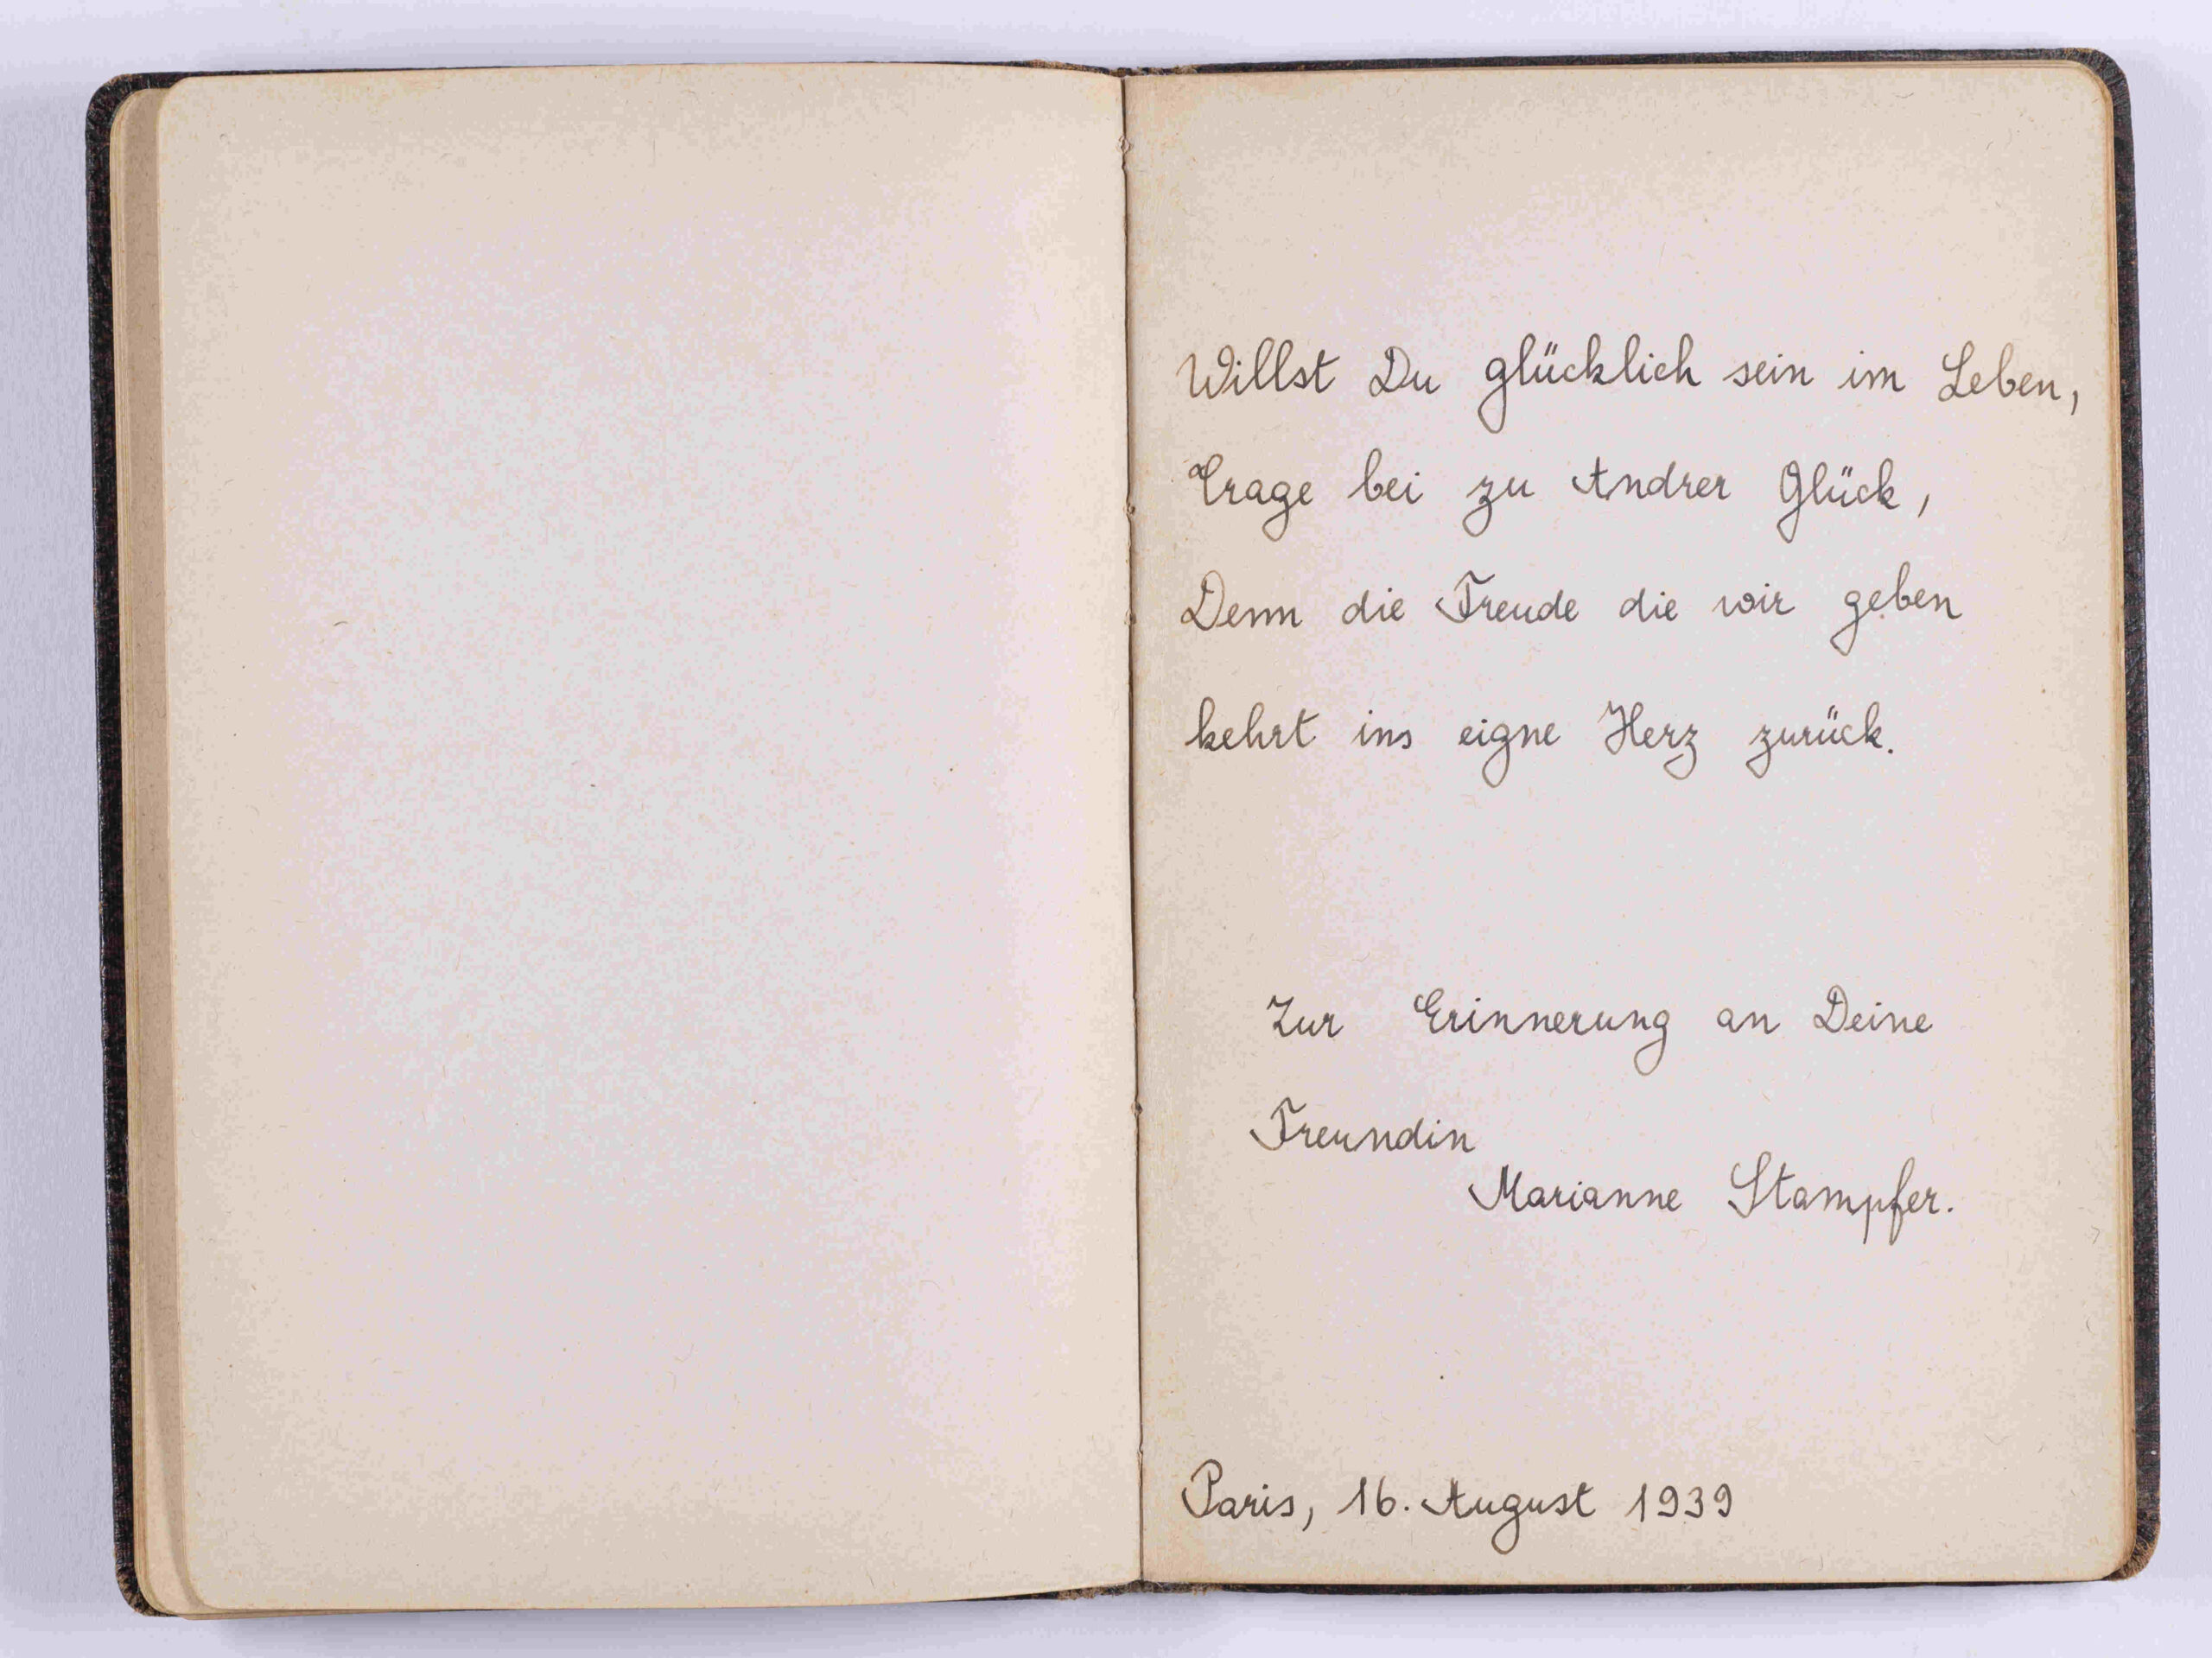 Willst Du glücklich sein im Leben,
Trage bei zu Andrer Glück,
Denn die Freude die wir geben
kehrt ins eigne Herz zurück.
Zur Erinnerung an Deine
Freundin
Marianne Stampfer.
Paris, 16. August 1939